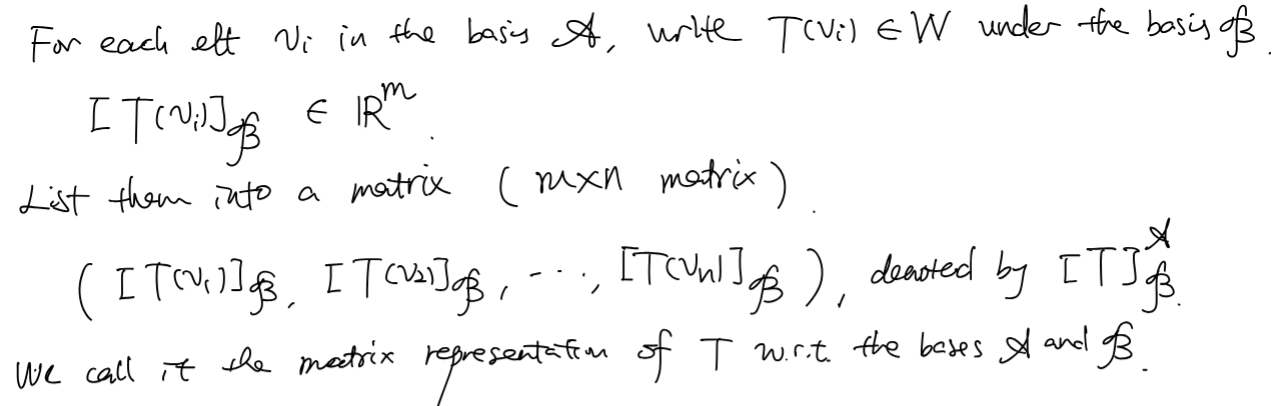 For each elt vᵢ in the basis 𝒜, write T(vᵢ) ∈ W under the basis ℬ.
[T(vᵢ)]_ℬ ∈ ℝᵐ.
List them into a matrix (m×n matrix).
([T(v₁)]_ℬ, [T(v₂)]_ℬ, ..., [T(vₙ)]_ℬ), denoted by [T]^𝒜_ℬ.
We call it the matrix representation of T w.r.t. the bases 𝒜 and ℬ.